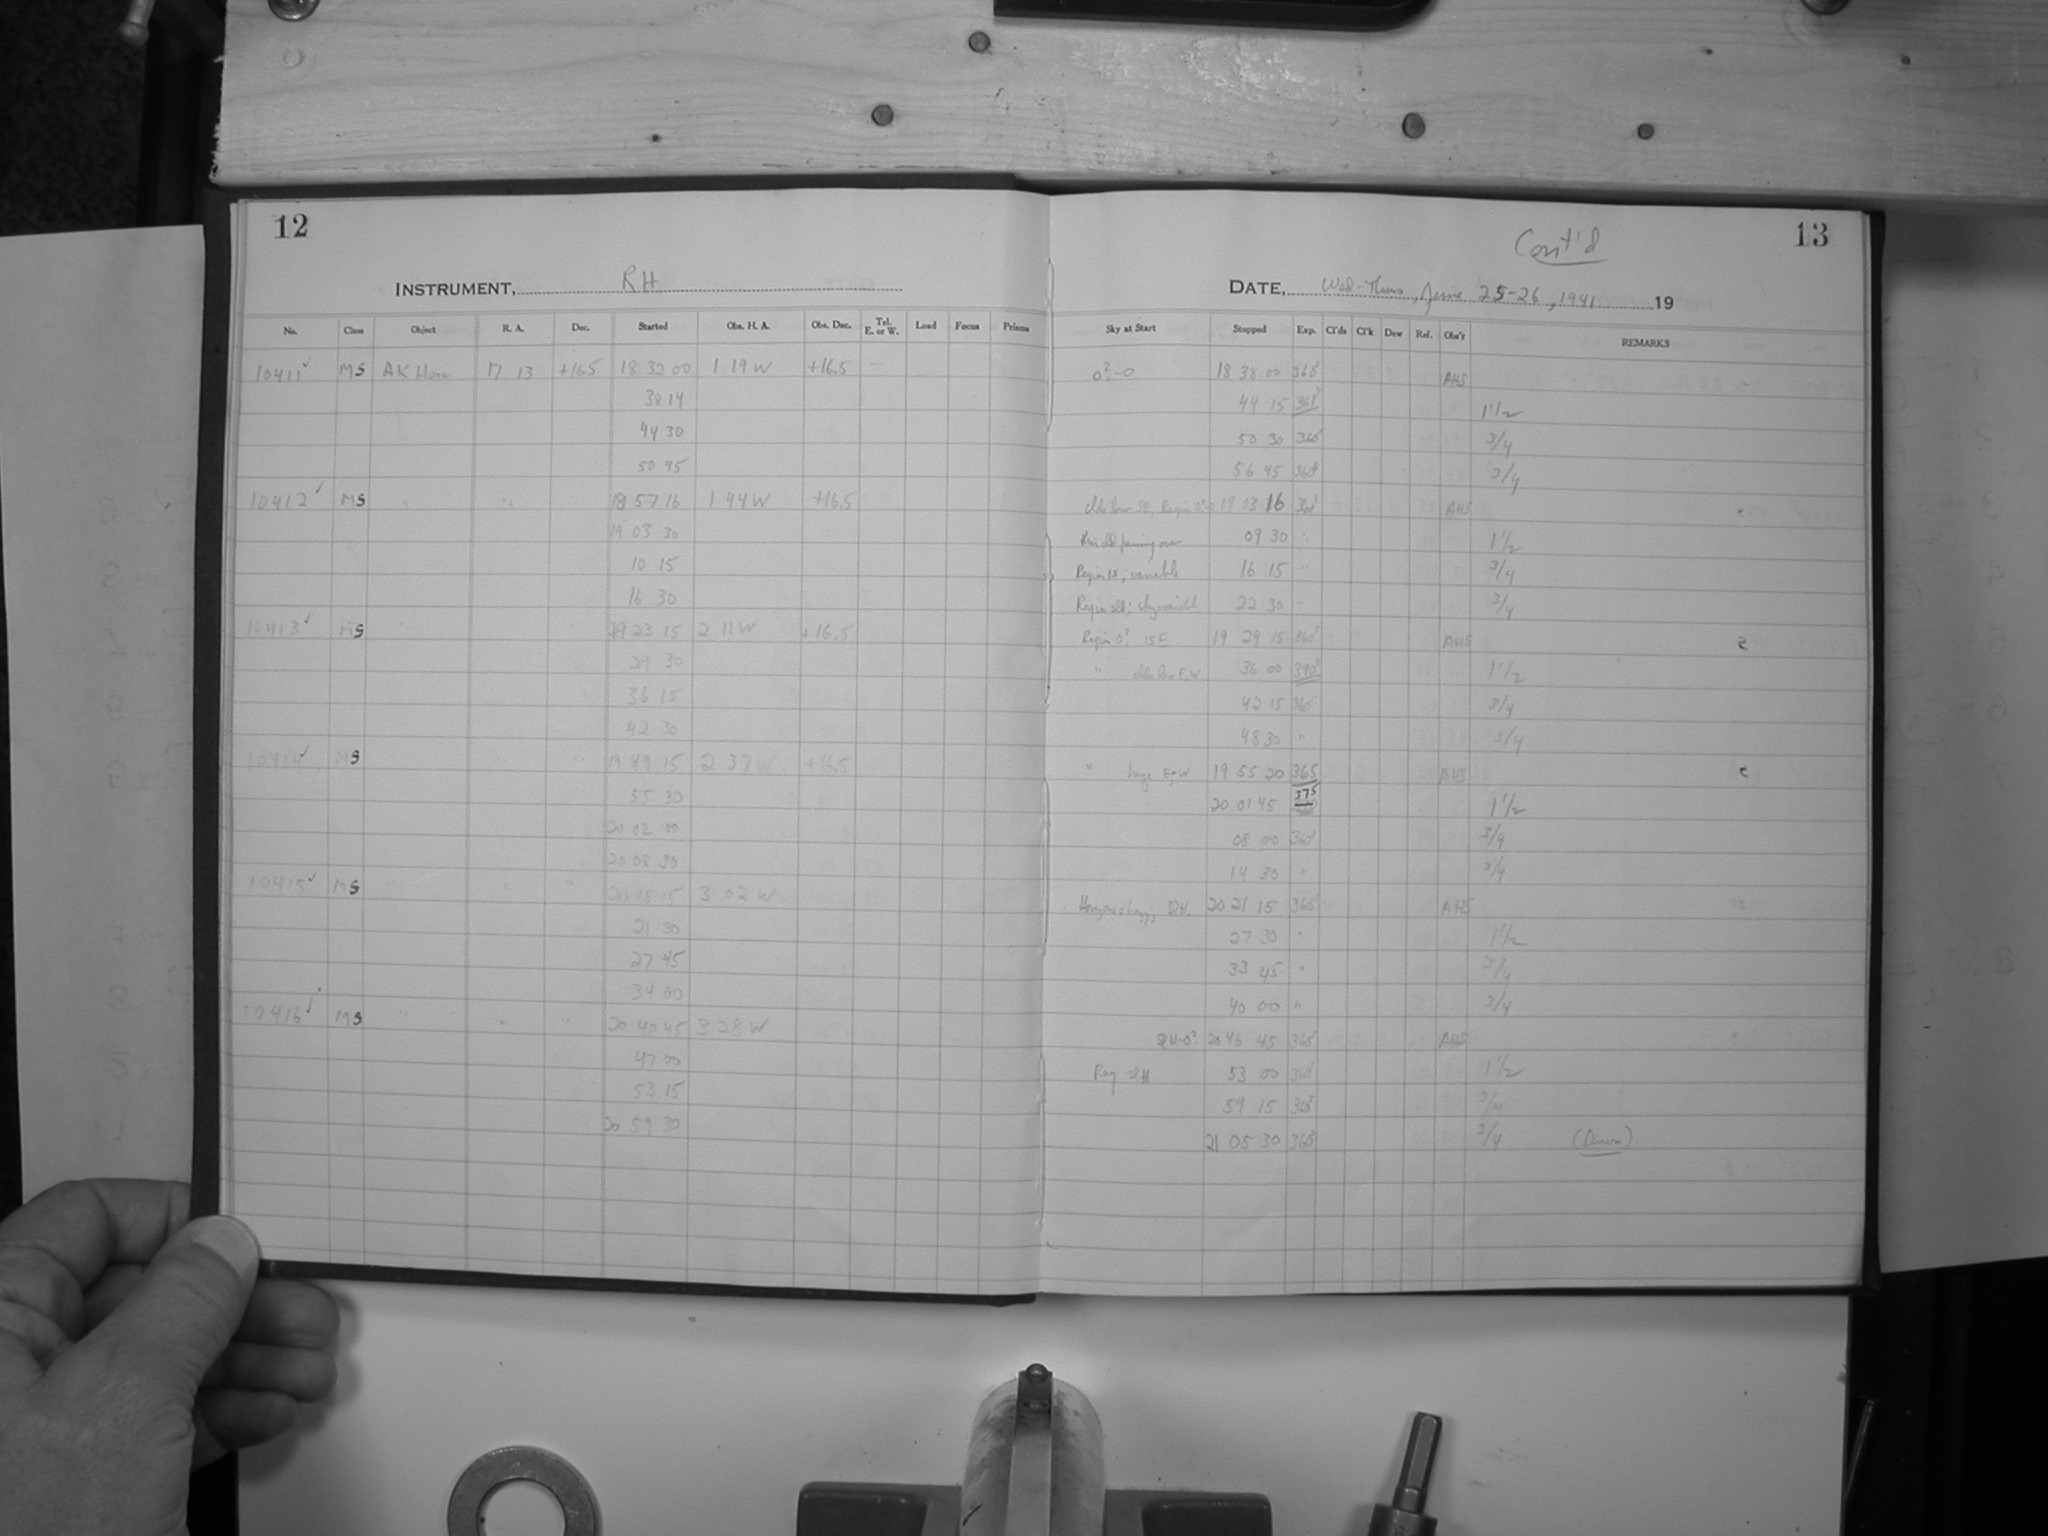 12
INSTRUMENT, RH
No. Class Object R. A. Dec. Started Obs. H. A. Obs. Dec. Tel. E. or W. Load Focus Prisms
10411 ✓ MS AK Herc 17 13 +16.5 18 32 00 1 19 W +16.5
38 14
44 30
50 45
10412 ✓ MS " " 18 57 16 1 44 W +16.5
19 03 30
10 15
16 30
10413 ✓ MS 19 23 15 2 11 W +16.5
29 30
36 15
42 30
10414 ✓ MS 19 49 15 2 37 W +16.5
55 30
20 02 00
20 08 30
10415 ✓ MS " " " 20 15 15 3 02 W
21 30
27 45
34 00
10416 ✓ MS " " " 20 40 45 3 28 W
47 00
53 15
20 59 30
13
Cont'd
DATE, Wed-Thurs, June 25-26, 1941 19
Sky at Start Stopped Exp. Cl'ds Cl'k Dew Ref. Obs'r REMARKS
0?-0 18 38 00 360s AHS
44 15 361s 1 1/2
50 30 360s 3/4
56 45 360s 3/4
low SE, Region 19 03 16 360s AHS
passing over 09 30 " 1 1/2
Region 18, variable 16 15 " 3/4
Region 22 30 " 3/4
Region 0? 19 29 15 360s AHS
" low E, W 36 00 390s 1 1/2
42 15 360s 3/4
48 30 " 3/4
" haze E+W 19 55 20 365 AHS
20 01 45 375 1 1/2
08 00 360s 3/4
14 30 " 3/4
20 21 15 360s AHS
27 30 " 1 1/2
33 45 " 3/4
40 00 " 3/4
20 46 45 360s AHS
53 00 360s 1 1/2
59 15 360s 3/4
21 05 30 360s 3/4 (Dawn)